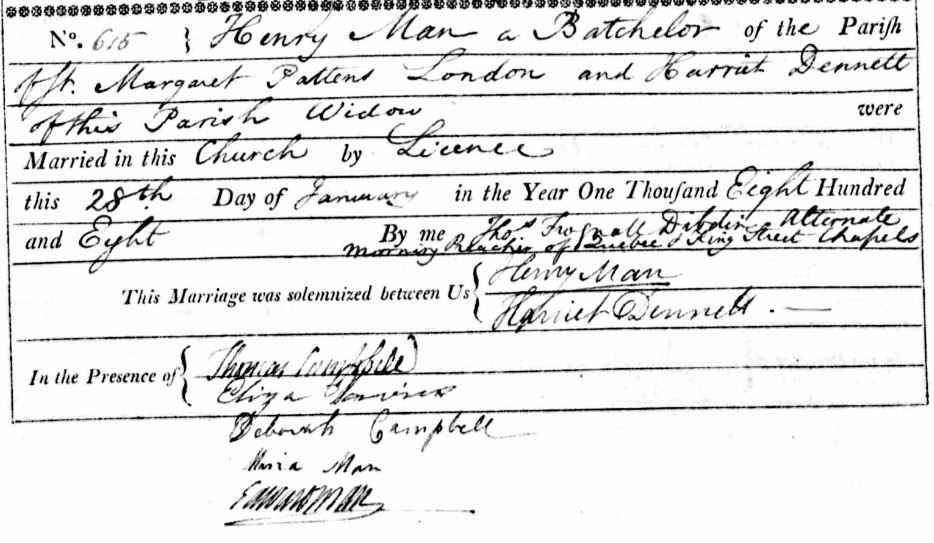 No. 615 } Henry Man a Batchelor of the Pariſh
of St. Margaret Pattens London and Harriet Dennett
of this Parish Widow were
Married in this Church by Licence
this 28th Day of January in the Year One Thouſand Eight Hundred
and Eight By me Thos Frognall Dibdin, Alternate
Morning Preacher of Quebec & King Street Chapels
This Marriage was solemnized between Us { Henry Man
Harriet Dennett
In the Presence of { Thomas Campbell
Eliza
Deborah Campbell
Maria Man
Edward Man